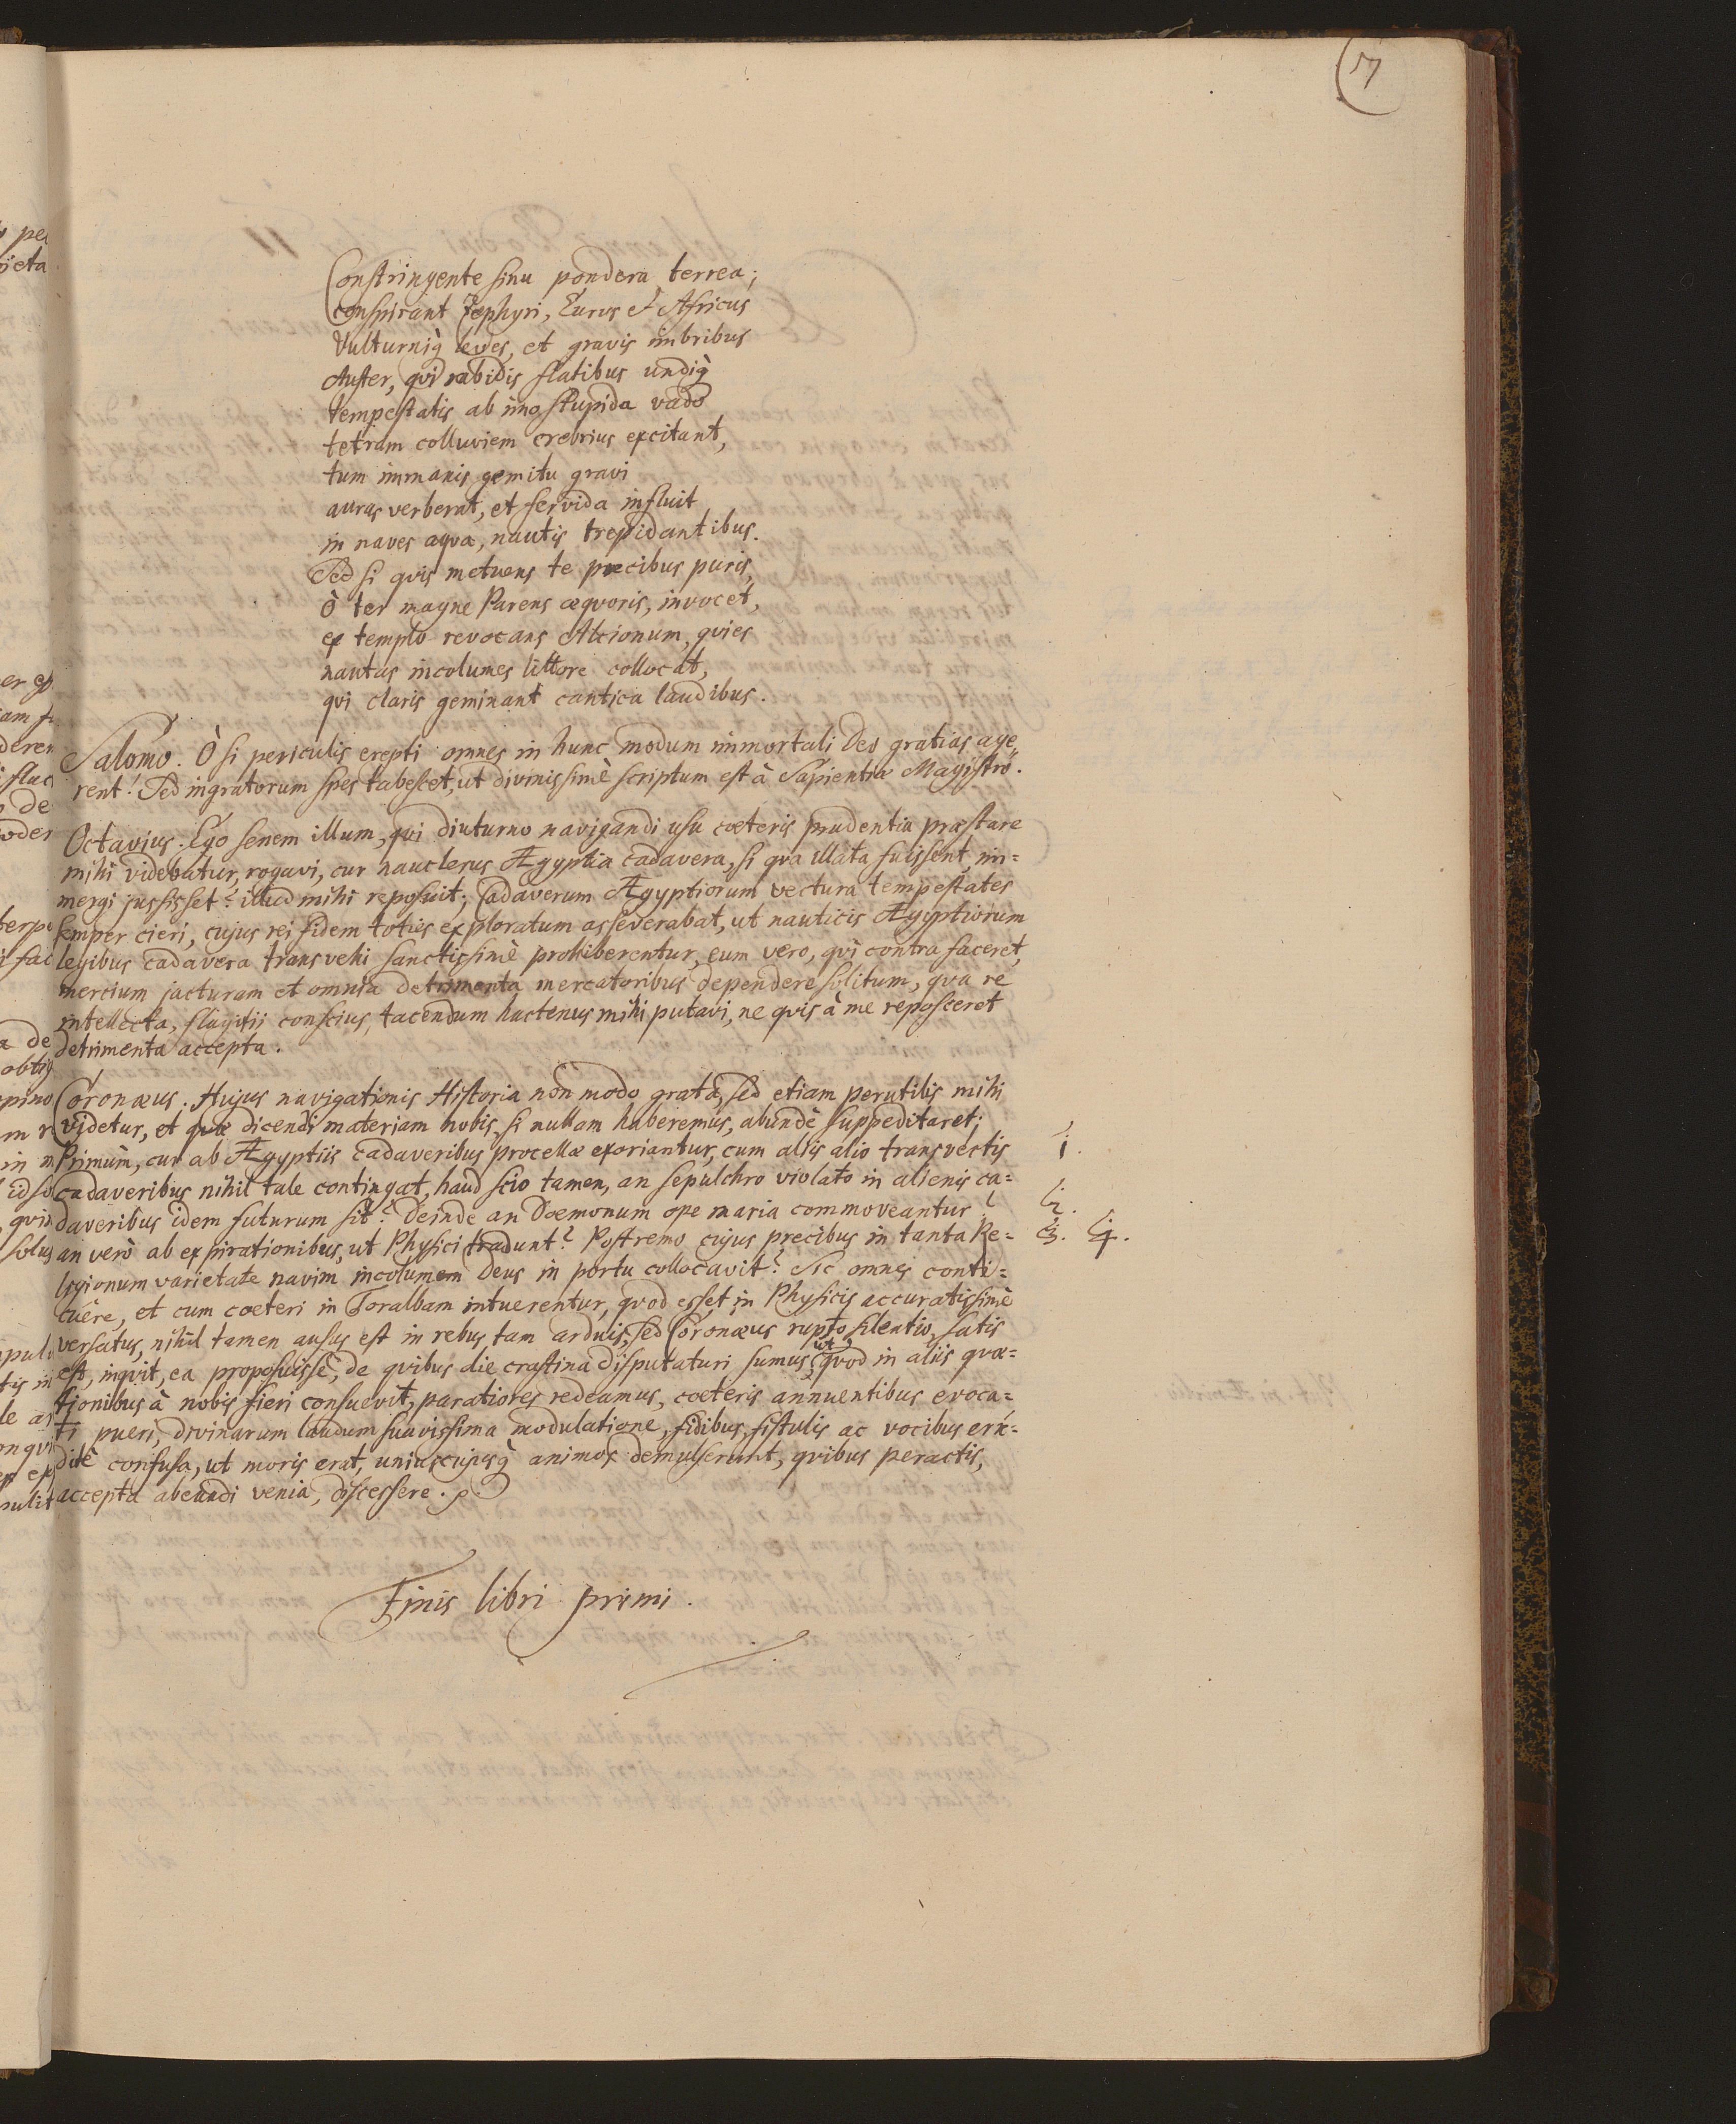 7
Constringente sinu pondera terrea;
conspirant Zephyri, Eurus et Africus
Vulturniq̀ leves, et gravis imbribus
Auster, qvi rabidis flatibus undiq̀
tempestatis ab imo stupida vado
tetram colluviem crebrius excitant,
tum immanis gemitu gravi
auras verberat, et fervida influit
in naves aqva, nautis trepidantibus.
Sed si qvis metuens te precibus puris,
Ò ter magne Parens æqvoris, invocet,
ex templo revocans Alcionum, qvies
nautas incolumes littore collocat,
qvi claris geminant cantica laudibus.
Salomo. Ò si periculis erepti omnes in hunc modum immortali Deo gratias age,
rent! Sed ingratorum spes tabescet, ut divinissimè scriptum est à Sapientiæ Magistro.
Octavius. Ego senem illum, qvi diuturno navigandi usu cœteris prudentia præstare
mihi videbatur, rogavi, cur nauclerus Ægyptia cadavera, si qva illata fuissent, im=
mergi jussisset? illud mihi reposuit; Cadaverum Ægyptiorum vectura tempestates
semper cieri, cujus rei fidem toties exploratum asseverabat, ut nauticis Ægyptiorum
legibus cadavera transvehi sanctissimè prohiberentur, eum vero, qvi contra faceret,
mercium jacturam et omnia detrimenta mercatoribus dependere solitum, qva re
intellecta, flagitii conscius, tacendum hactenus mihi putavi, ne qvis à me reposceret
detrimenta accepta.
Coronæus. Hujus navigationis Historia non modo grata, sed etiam perutilis mihi
videtur, et qvæ dicendi materiam nobis, si nullam haberemus, abundè suppeditaret;
Primùm, cur ab Ægyptiis cadaveribus procellæ exoriantur, cum aliis alio transvectis 1.
cadaveribus nihil tale contingat, haud scio tamen, an sepulchro violato in alienis ca=
daveribus idem futurum sit? Deinde an Dœmonum ope maria commoveantur? 2.
an verò ab expirationibus, ut Physici tradunt? Postremo cujus precibus in tanta Re= 3. 4.
ligionum varietate navim incolumem Deus in portu collocavit? Sic omnes conti=
cuêre, et cum cœteri in Toralbam intuerentur, qvod esset in Physicis accuratissimè
versatus, nihil tamen ausus est in rebus tam arduis, sed Coronæus rupto silentio, satis
est, inqvit, ea proposuisse, de qvibus die crastina disputaturi sumus, ut qvod in aliis qvæ=
tionibus à nobis fieri consuevit, paratiores redeamus, cœteris annuentibus evoca=
ti pueri, divinarum laudum suavissima modulatione, fidibus, fistulis ac vocibus eru=
ditè confusa, ut moris erat, uniuscujusq̀ animos demulserunt, qvibus peractis,
accepta abeundi venia, discessere.
Finis libri primi.